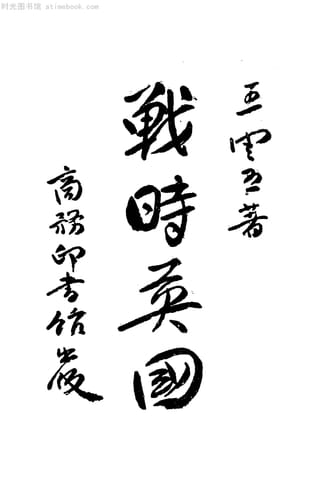 时光图书馆 atimebook.com
王雲五著
戰時英國
商務印書館出版